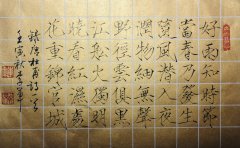 好雨知時節
當春乃發生
隨風潛入夜
潤物細無聲
野徑雲俱黑
江船火獨明
曉看紅濕處
花重錦官城
錄唐杜甫詩
壬寅秋